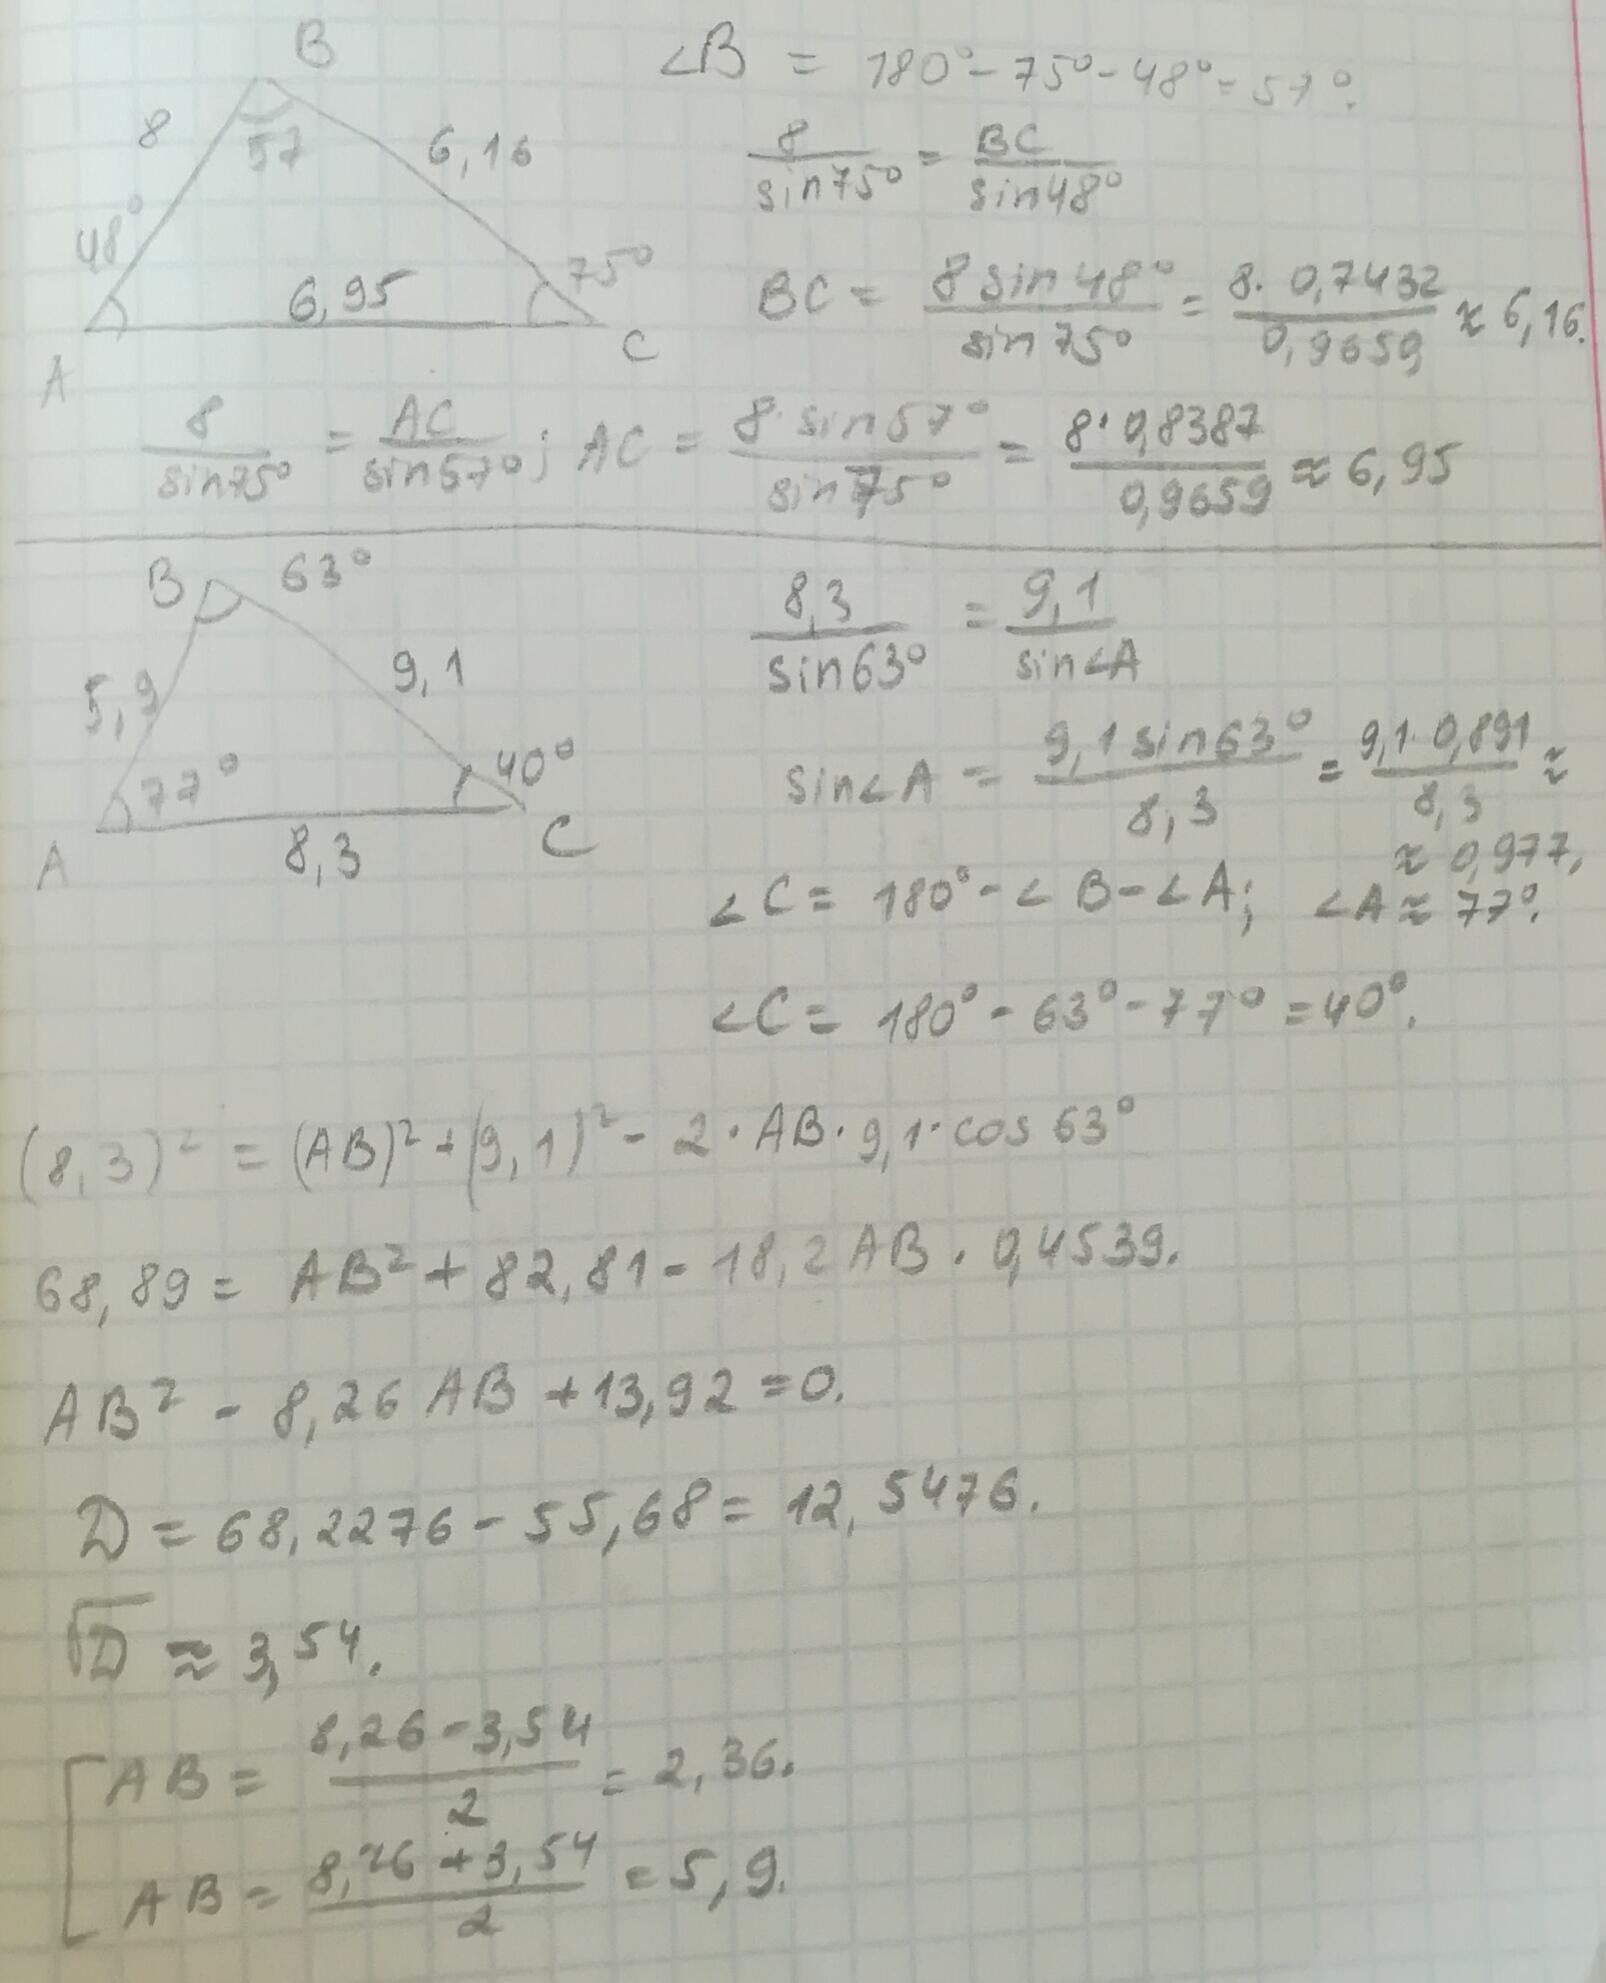 B
∠B = 180° - 75° - 48° = 57°.
8
57
6,16
8/sin75° = BC/sin48°
48°
75°
6,95
BC = 8 sin 48°/sin 75° = 8 · 0,7432/0,9659 ≈ 6,16.
A
C
8/sin75° = AC/sin57°; AC = 8 · sin57°/sin75° = 8 · 0,8387/0,9659 ≈ 6,95
B 63°
8,3/sin63° = 9,1/sin∠A
5,9
9,1
77°
40°
sin∠A = 9,1 sin63°/8,3 = 9,1 · 0,891/8,3 ≈
≈ 0,977,
A
8,3
C
∠C = 180° - ∠B - ∠A; ∠A ≈ 77°.
∠C = 180° - 63° - 77° = 40°.
(8,3)² = (AB)² + (9,1)² - 2 · AB · 9,1 · cos 63°
68,89 = AB² + 82,81 - 18,2 AB · 0,4539.
AB² - 8,26 AB + 13,92 = 0.
D = 68,2276 - 55,68 = 12,5476.
√D ≈ 3,54.
[ AB = 8,26 - 3,54/2 = 2,36.
AB = 8,26 + 3,54/2 = 5,9.